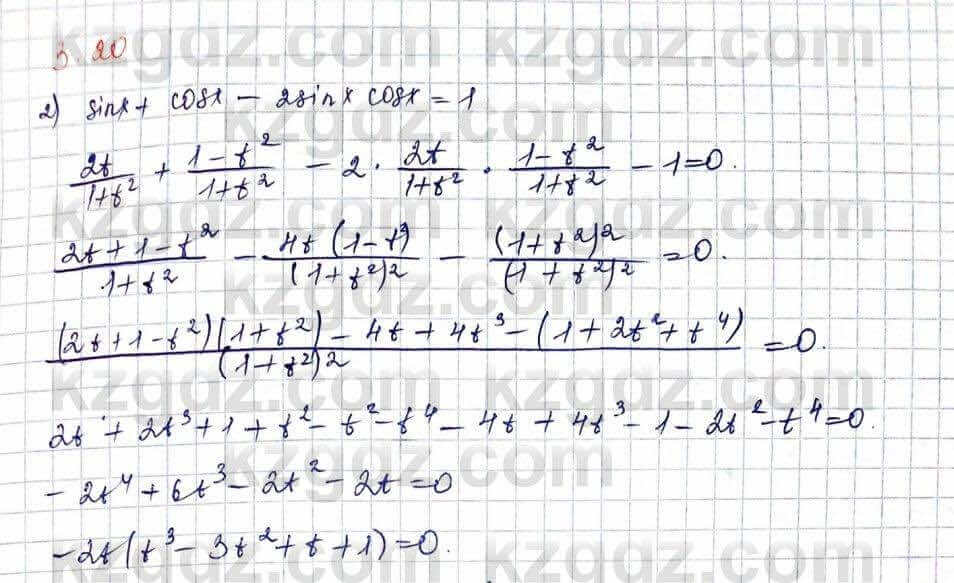 3.20
2) sinx + cosx − 2sinx cosx = 1
2t/(1+t²) + (1−t²)/(1+t²) − 2 · 2t/(1+t²) · (1−t²)/(1+t²) − 1 = 0.
(2t+1−t²)/(1+t²) − 4t(1−t²)/(1+t²)² − (1+t²)²/(1+t²)² = 0.
((2t+1−t²)(1+t²) − 4t + 4t³ − (1+2t²+t⁴))/(1+t²)² = 0.
2t + 2t³ + 1 + t² − t² − t⁴ − 4t + 4t³ − 1 − 2t² − t⁴ = 0.
−2t⁴ + 6t³ − 2t² − 2t = 0
−2t(t³ − 3t² + t + 1) = 0.
kzgdz.com